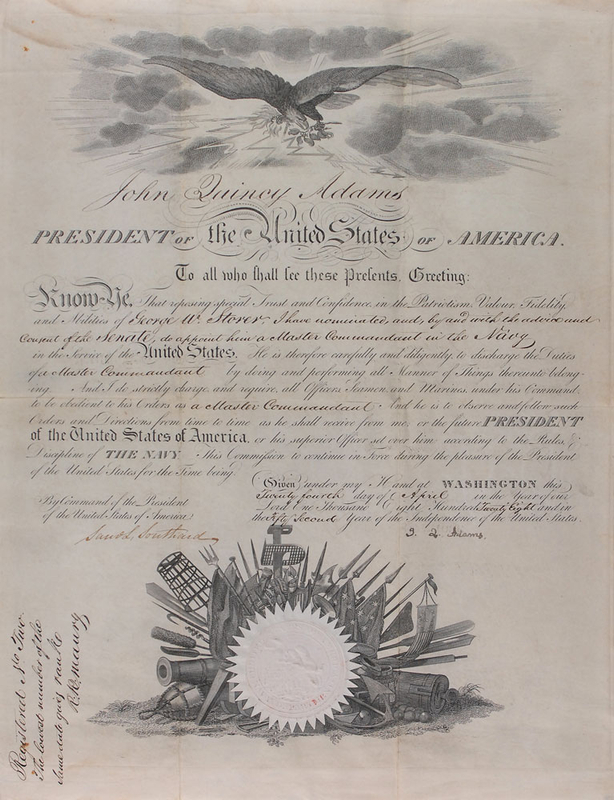 John Quincy Adams
PRESIDENT OF the United States OF AMERICA.
To all who shall see these Presents, Greeting:
Know Ye, That reposing special Trust and Confidence in the Patriotism, Valour, Fidelity,
and Abilities of George W. Storer, I have nominated, and, by and with the advice and
Consent of the Senate, do appoint him a Master Commandant in the Navy
in the Service of the United States. He is therefore carefully and diligently to discharge the Duties
of a Master Commandant by doing and performing all Manner of Things thereunto belong-
ing. And I do strictly charge and require all Officers, Seamen and Marines, under his Command,
to be obedient to his Orders as a Master Commandant And he is to observe and follow such
Orders and Directions from time to time as he shall receive from me, or the future PRESIDENT
of the United States of America, or his superior Officer set over him according to the Rules &
Discipline of THE NAVY This Commission to continue in Force during the pleasure of the President
of the United States for the Time being.
Given under my Hand at WASHINGTON this
Twenty fourth day of April in the Year of our
Lord One Thousand Eight Hundred Twenty Eight and in
the Fifty Second Year of the Independence of the United States.
By Command of the President
of the United States of America
J. Q. Adams.
Saml L. Southard
Registered No Two
The lowest number of the
same date gives rank
R. Maury